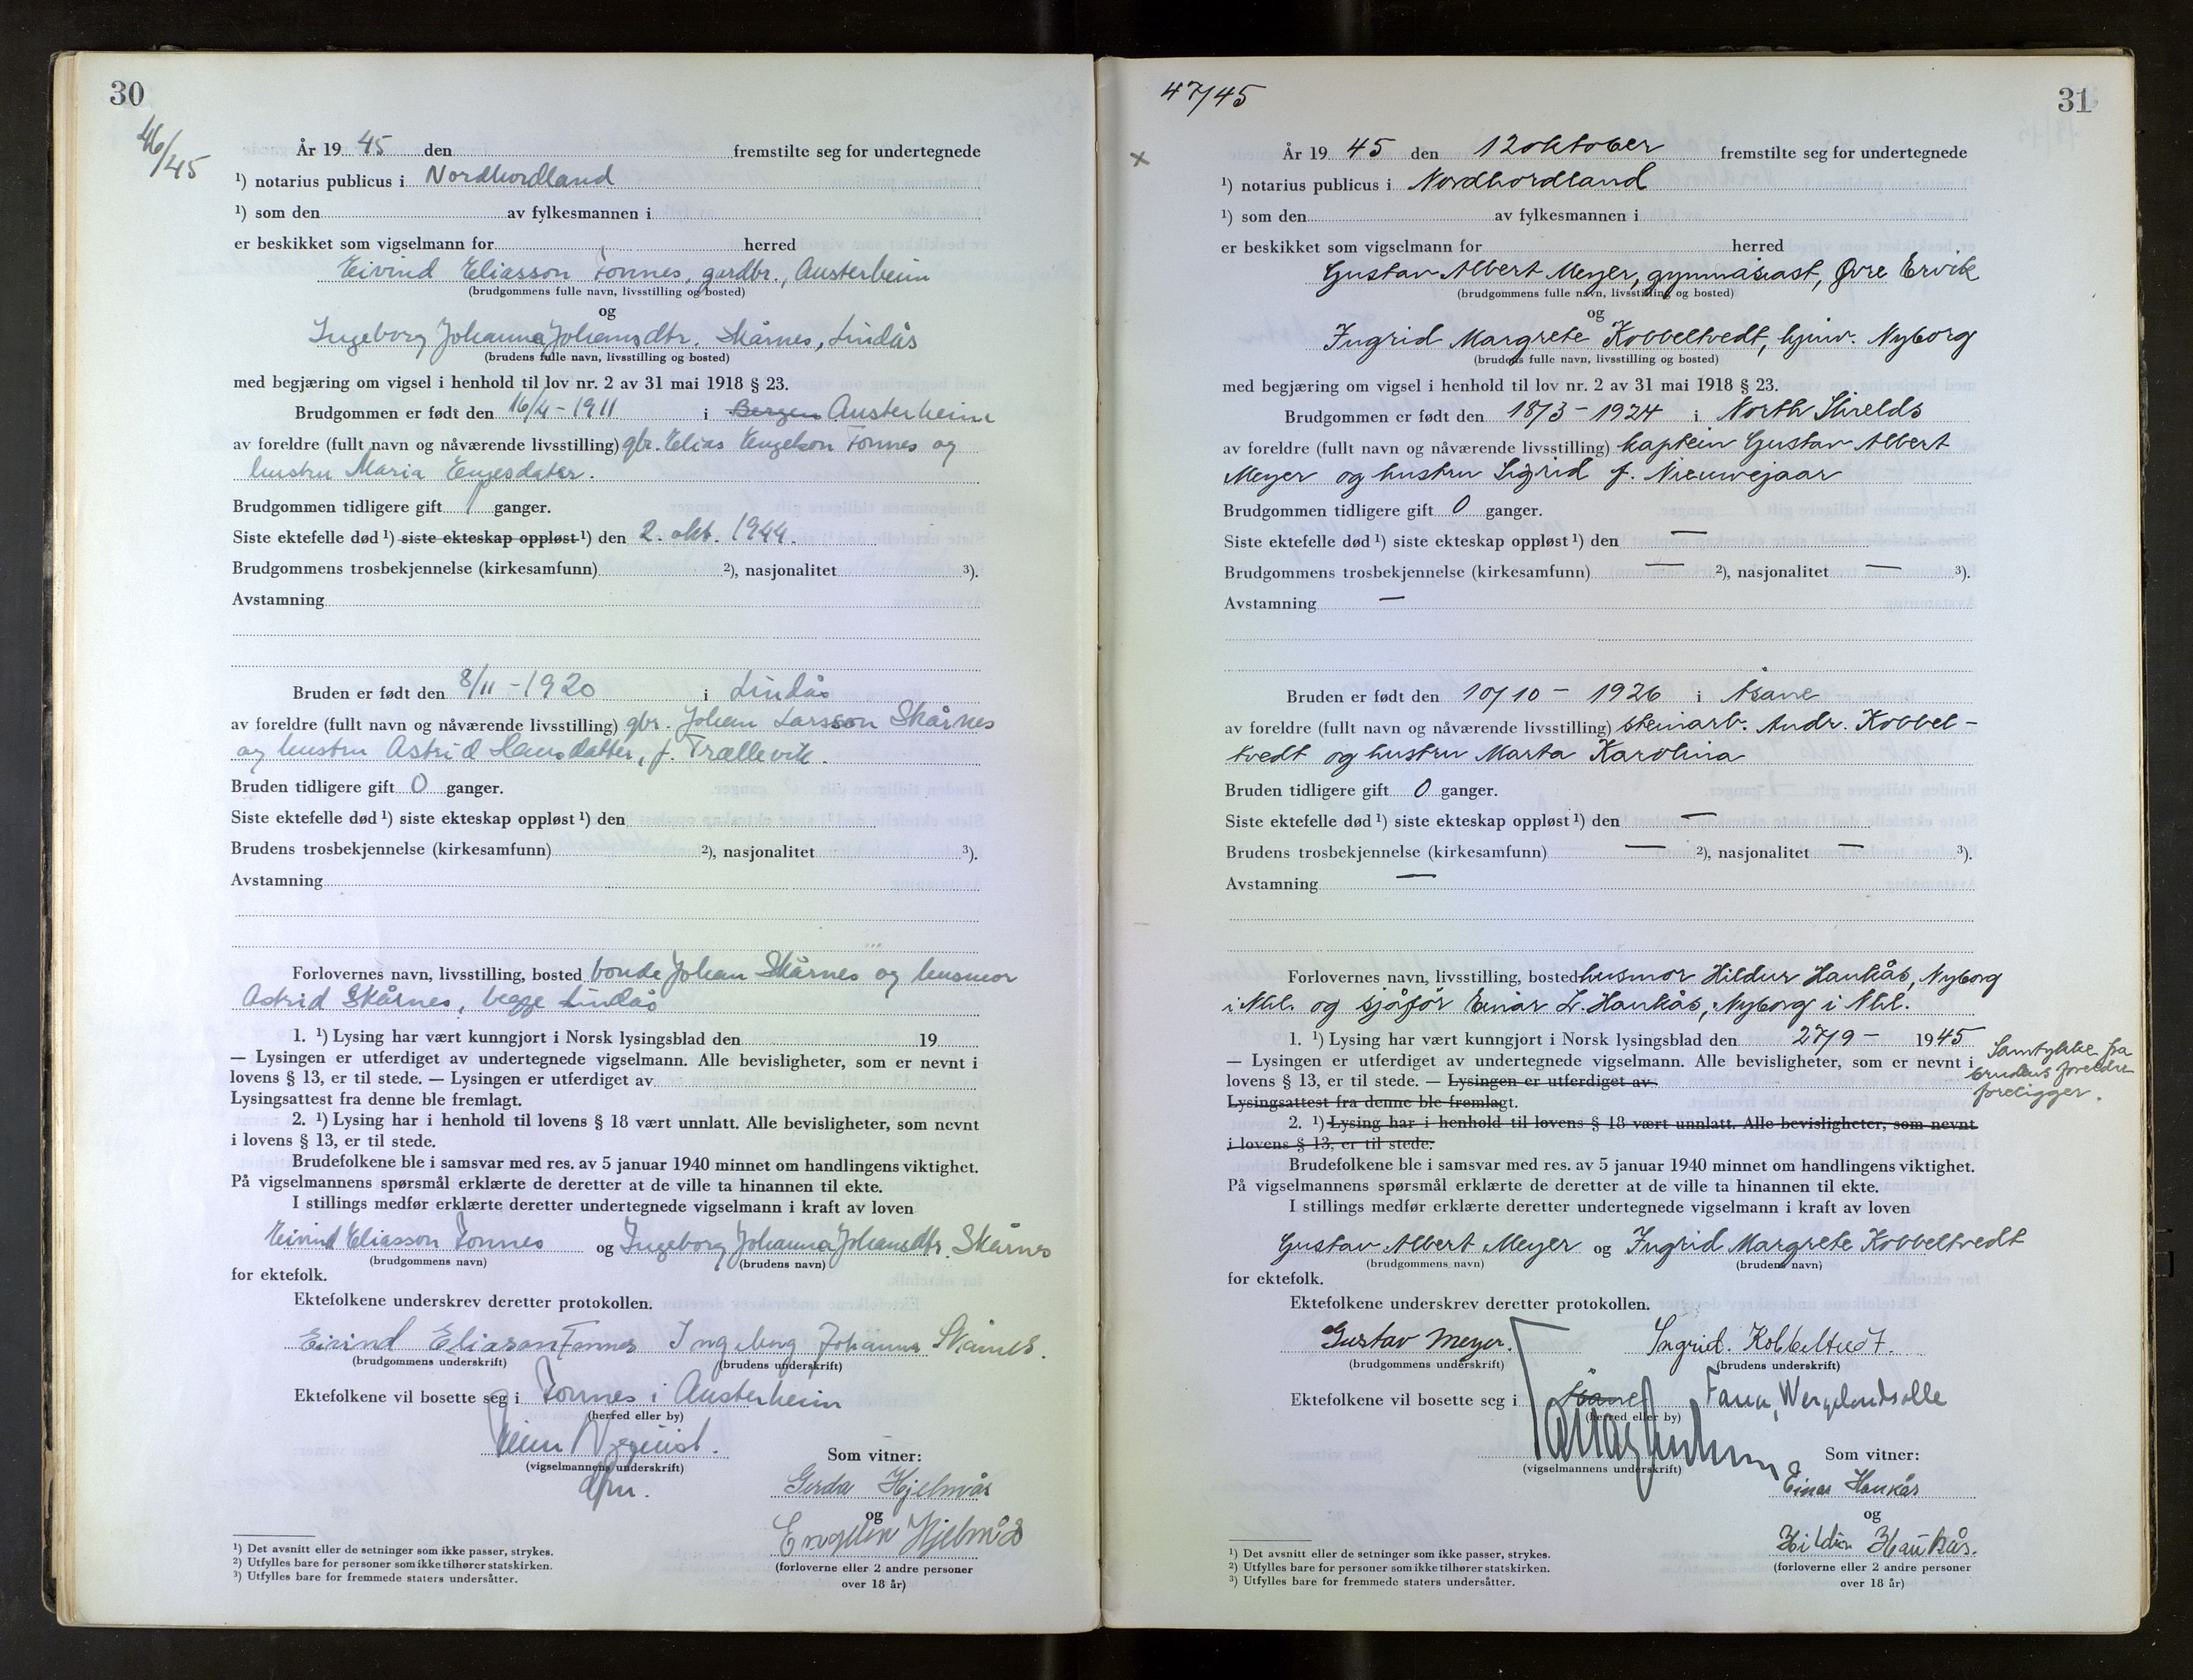 30
46/45
År 19 45 den fremstilte seg for undertegnede
¹) notarius publicus i Nordhordland
¹) som den av fylkesmannen i
er beskikket som vigselmann for herred
Eivind Eliasson Fonnes, gardbr., Austerheim
(brudgommens fulle navn, livsstilling og bosted)
og
Ingeborg Johanna Johansdtr. Skårnes, Lindås
(brudens fulle navn, livsstilling og bosted)
med begjæring om vigsel i henhold til lov nr. 2 av 31 mai 1918 § 23.
Brudgommen er født den 16/4 - 1911 i Bergen Austerheim
av foreldre (fullt navn og nåværende livsstilling) gbr. Elias Engelson Fonnes og
hustru Maria Engesdatter.
Brudgommen tidligere gift 1 ganger.
Siste ektefelle død ¹) siste ekteskap oppløst ¹) den 2. okt. 1944.
Brudgommens trosbekjennelse (kirkesamfunn) ²), nasjonalitet ³).
Avstamning
Bruden er født den 8/11 - 1920 i Lindås
av foreldre (fullt navn og nåværende livsstilling) gbr. Johan Larsson Skårnes
og hustru Astrid Hansdatter, f. Trællevik.
Bruden tidligere gift 0 ganger.
Siste ektefelle død ¹) siste ekteskap oppløst ¹) den
Brudens trosbekjennelse (kirkesamfunn) ²), nasjonalitet ³).
Avstamning
Forlovernes navn, livsstilling, bosted bonde Johan Skårnes og husmor
Astrid Skårnes, begge Lindås
1. ¹) Lysing har vært kunngjort i Norsk lysingsblad den 19
— Lysingen er utferdiget av undertegnede vigselmann. Alle bevisligheter, som er nevnt i
lovens § 13, er til stede. — Lysingen er utferdiget av
Lysingsattest fra denne ble fremlagt.
2. ¹) Lysing har i henhold til lovens § 18 vært unnlatt. Alle bevisligheter, som nevnt
i lovens § 13, er til stede.
Brudefolkene ble i samsvar med res. av 5 januar 1940 minnet om handlingens viktighet.
På vigselmannens spørsmål erklærte de deretter at de ville ta hinannen til ekte.
I stillings medfør erklærte deretter undertegnede vigselmann i kraft av loven
Eivind Eliasson Fonnes og Ingeborg Johanna Johansdtr. Skårnes
(brudgommens navn) (brudens navn)
for ektefolk.
Ektefolkene underskrev deretter protokollen.
Eivind Eliason Fonnes Ingeborg Johanna Skårnes.
(brudgommens underskrift) (brudens underskrift)
Ektefolkene vil bosette seg i Fonnes i Austerheim
(herred eller by)
Som vitner:
(vigselmannens underskrift)
Gerda Hjelmås
og
Engelin Hjelmås
(forloverne eller 2 andre personer
over 18 år)
¹) Det avsnitt eller de setninger som ikke passer, strykes.
²) Utfylles bare for personer som ikke tilhører statskirken.
³) Utfylles bare for fremmede staters undersåtter.
47/45
31
×
År 19 45 den 12 oktober fremstilte seg for undertegnede
¹) notarius publicus i Nordhordland
¹) som den av fylkesmannen i
er beskikket som vigselmann for herred
Gustav Albert Meyer, gymnasiast, Øvre Ervik
(brudgommens fulle navn, livsstilling og bosted)
og
Ingrid Margrete Kobbeltvedt, hjmv. Nyborg
(brudens fulle navn, livsstilling og bosted)
med begjæring om vigsel i henhold til lov nr. 2 av 31 mai 1918 § 23.
Brudgommen er født den 18/3 - 1924 i North Shields
av foreldre (fullt navn og nåværende livsstilling) kaptein Gustav Albert
Meyer og hustru Sigrid f. Nieuwejaar
Brudgommen tidligere gift 0 ganger.
Siste ektefelle død ¹) siste ekteskap oppløst ¹) den —
Brudgommens trosbekjennelse (kirkesamfunn) — ²), nasjonalitet — ³).
Avstamning —
Bruden er født den 10/10 - 1926 i Åsane
av foreldre (fullt navn og nåværende livsstilling) steinarb. Andr. Kobbel-
tvedt og hustru Marta Karolina
Bruden tidligere gift 0 ganger.
Siste ektefelle død ¹) siste ekteskap oppløst ¹) den —
Brudens trosbekjennelse (kirkesamfunn) — ²), nasjonalitet — ³).
Avstamning —
Forlovernes navn, livsstilling, bosted husmor Hildur Haukås, Nyborg
i Nhl. og sjåfør Einar L. Haukås, Nyborg i Nhl.
1. ¹) Lysing har vært kunngjort i Norsk lysingsblad den 27/9 - 1945
— Lysingen er utferdiget av undertegnede vigselmann. Alle bevisligheter, som er nevnt i
lovens § 13, er til stede. — Lysingen er utferdiget av
Lysingsattest fra denne ble fremlagt.
Samtykke fra
brudens foreldre
foreligger.
2. ¹) Lysing har i henhold til lovens § 18 vært unnlatt. Alle bevisligheter, som nevnt
i lovens § 13, er til stede.
Brudefolkene ble i samsvar med res. av 5 januar 1940 minnet om handlingens viktighet.
På vigselmannens spørsmål erklærte de deretter at de ville ta hinannen til ekte.
I stillings medfør erklærte deretter undertegnede vigselmann i kraft av loven
Gustav Albert Meyer og Ingrid Margrete Kobbeltvedt
(brudgommens navn) (brudens navn)
for ektefolk.
Ektefolkene underskrev deretter protokollen.
Gustav Meyer. Ingrid. Kobbeltvedt.
(brudgommens underskrift) (brudens underskrift)
Ektefolkene vil bosette seg i Åsane Fana, Wergelandsalle
(herred eller by)
Som vitner:
(vigselmannens underskrift)
Einar Haukås
og
Hildur Haukås.
(forloverne eller 2 andre personer
over 18 år)
¹) Det avsnitt eller de setninger som ikke passer, strykes.
²) Utfylles bare for personer som ikke tilhører statskirken.
³) Utfylles bare for fremmede staters undersåtter.